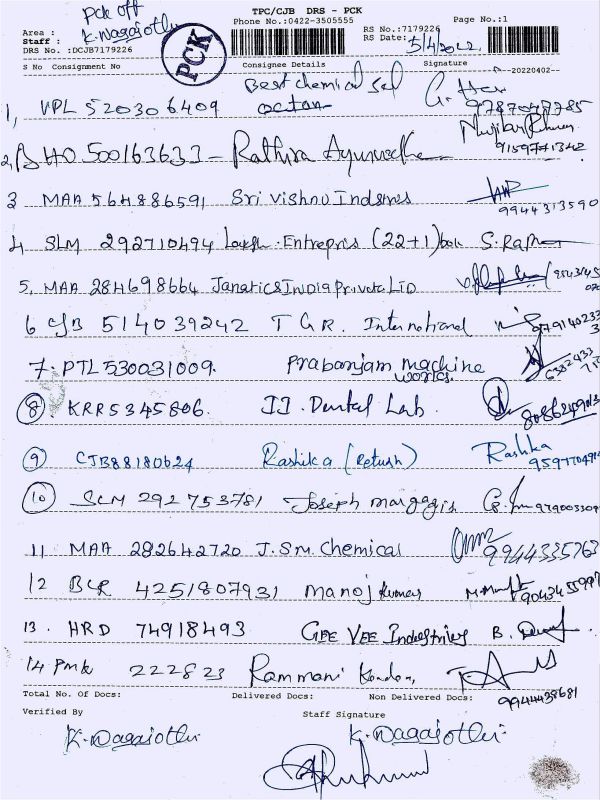 Pck off
TPC/CJB DRS - PCK
Phone No.:0422-3505555
Page No.:1
Area :
Staff : K. Nagajothi
DRS No. :DCJB7179226
PCK
RS No.:7179226
RS Date: 5/4/2022
S No Consignment No Consignee Details Signature --20220402--
1, VPL 520306409 Best chemical 9787047785
2, BHO.500163633 - Rathira Ayurvedha 9159771342
3 MAA 564886591 Sri Vishnu 9944313590
4. SLM 292710494 (22+1) box S. Raj
5. MAA 284698664 Janatics India Private LTD
6 CJB 514039242 T G R. International
7. PTL 530031009. Prabanjam machine works.
8. KRR 5345806. JJ. Dental Lab.
9 CJB88180624 Rashika (Return) Rashka
10 SLM 292753781 Joseph
11 MAA 282642720 J.S.M. Chemical 9944335763
12 BLR 4251807931 Manoj Kumar
13. HRD 74918493 GEE VEE Industries B.
14 PMK 222823 Rammani
9944438681
Total No. Of Docs: Delivered Docs: Non Delivered Docs:
Verified By Staff Signature
K. Nagajothi K. Nagajothi